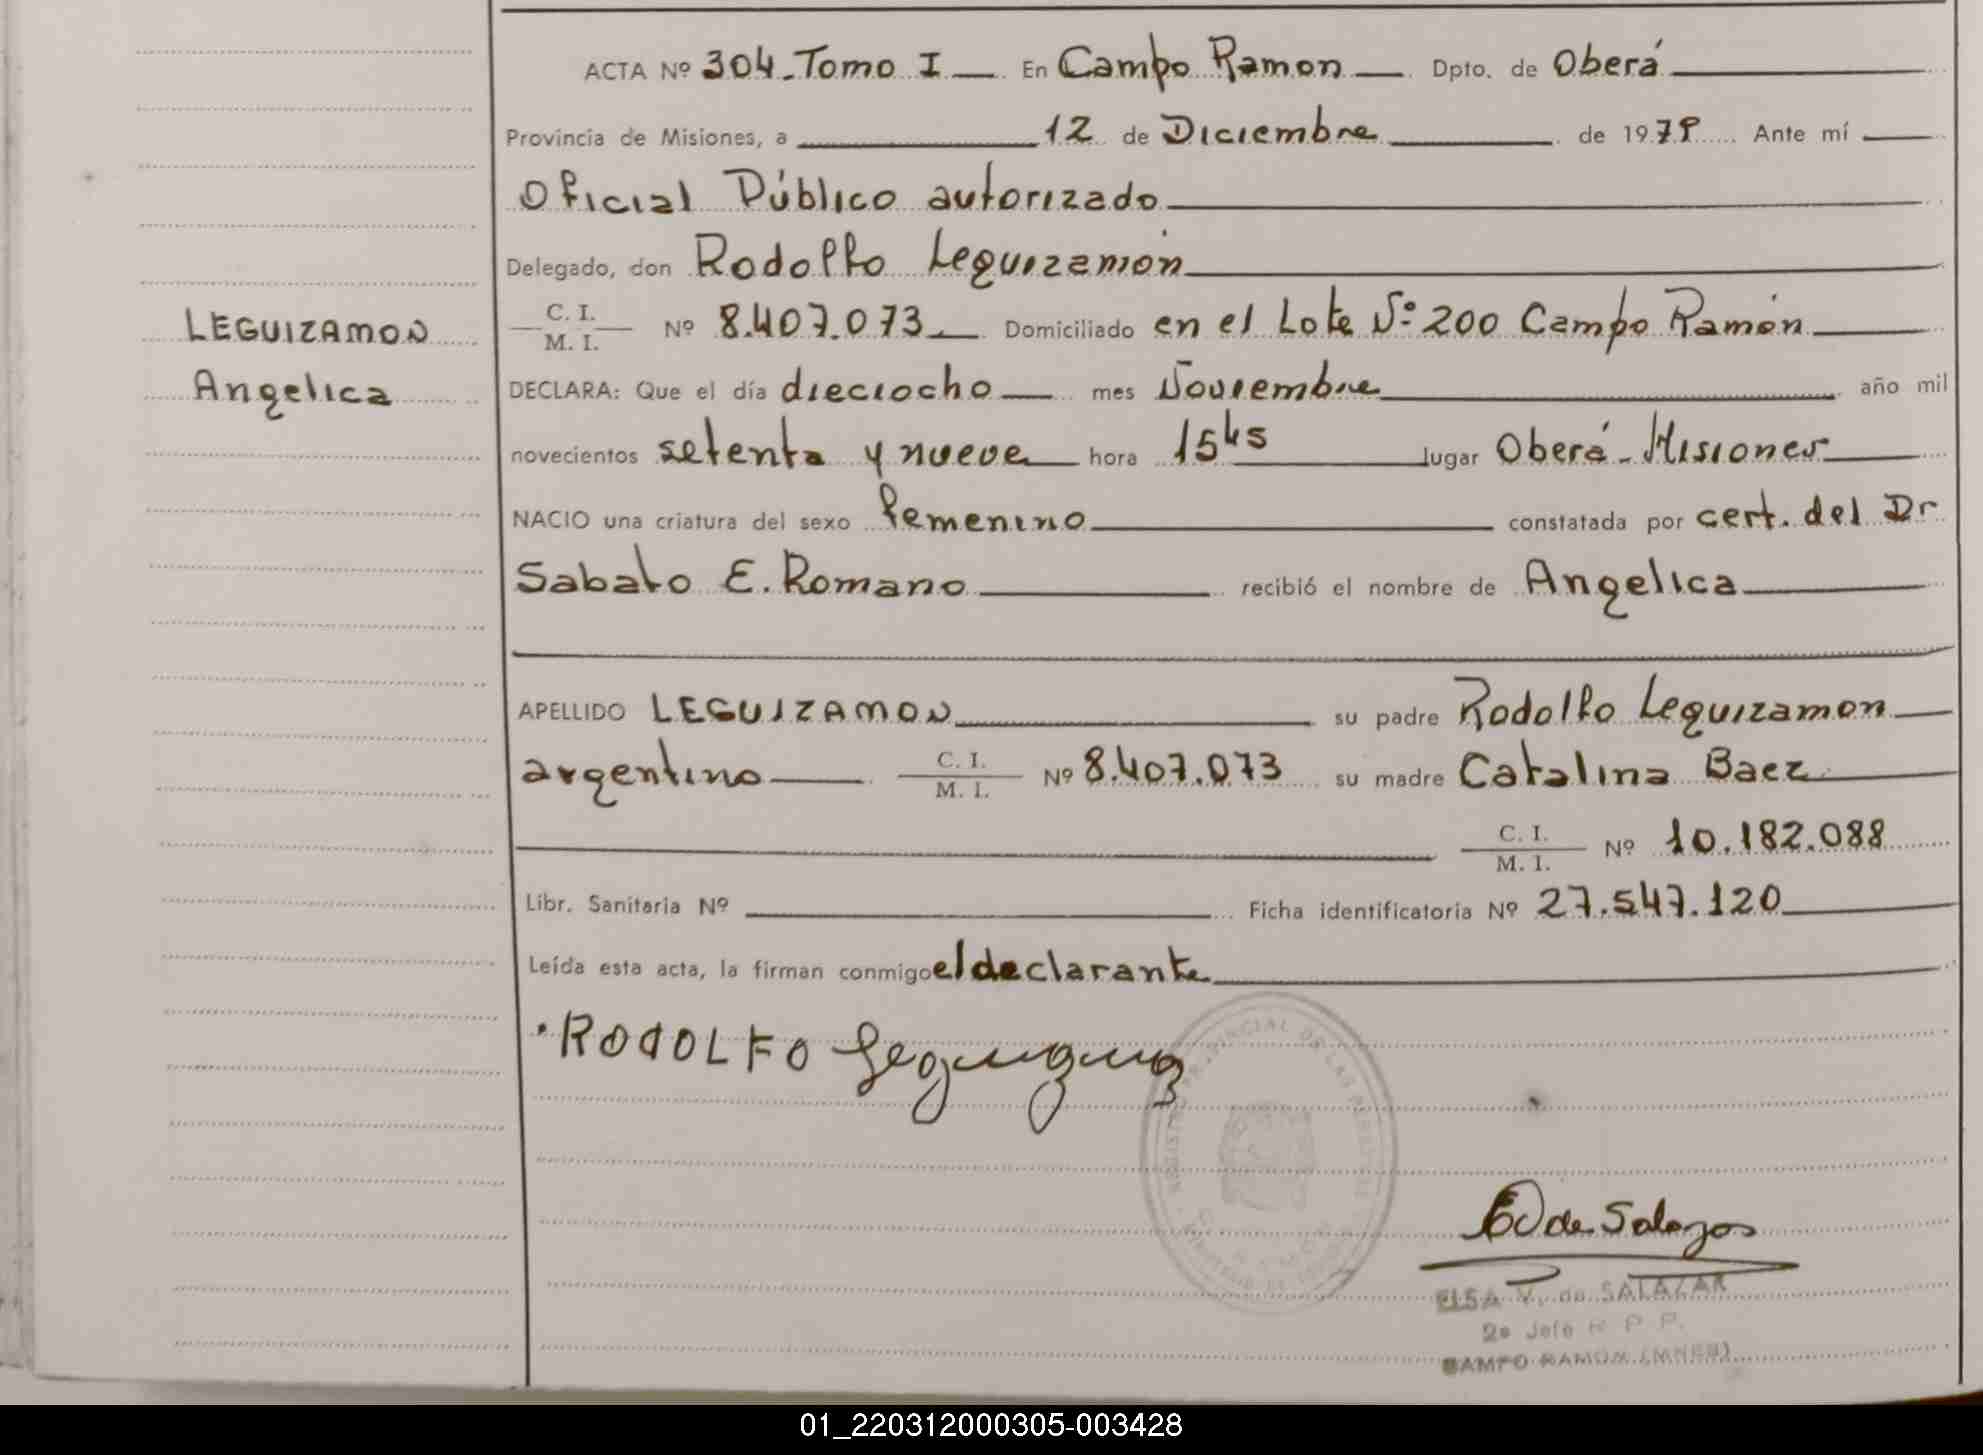 ACTA Nº 304 - Tomo I En Campo Ramon Dpto. de Oberá
Provincia de Misiones, a 12 de Diciembre de 1979 Ante mí
Oficial Público autorizado
Delegado, don Rodolfo Leguizamón
C. I.
M. I. Nº 8.407.073 Domiciliado en el Lote Nº 200 Campo Ramón
LEGUIZAMON
Angelica
DECLARA: Que el día dieciocho mes Noviembre año mil
novecientos setenta y nueve hora 15hs lugar Oberá - Misiones
NACIO una criatura del sexo femenino constatada por cert. del Dr
Sabato E. Romano recibió el nombre de Angelica
APELLIDO LEGUIZAMON su padre Rodolfo Leguizamon
argentino C. I.
M. I. Nº 8.407.073 su madre Catalina Baez
C. I.
M. I. Nº 10.182.088
Libr. Sanitaria Nº Ficha identificatoria Nº 27.547.120
Leída esta acta, la firman conmigo el declarante
RODOLFO
de Salazar
ELSA V. de SALAZAR
2º Jefe R. P. P.
CAMPO RAMON (MNES)
01_220312000305-003428